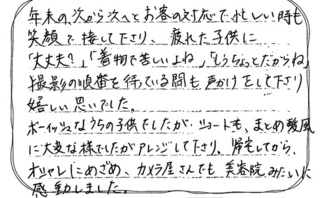 年末の、次から次へとお客の対応で忙しい時も
笑顔で接して下さり、疲れた子供に
「大丈夫?」「着物で苦しいよね」「もうちょっとだからね」
撮影の順番を待っている間も声かけをして下さり
嬉しい思いでした。
ボーイッシュなうちの子供でしたが、ショートも、まとめ髪風
に大変な様でしたがアレンジして下さり、帰宅してから、
オシャレにめざめ、カメラ屋さんでも美容院みたいに
感動しました。